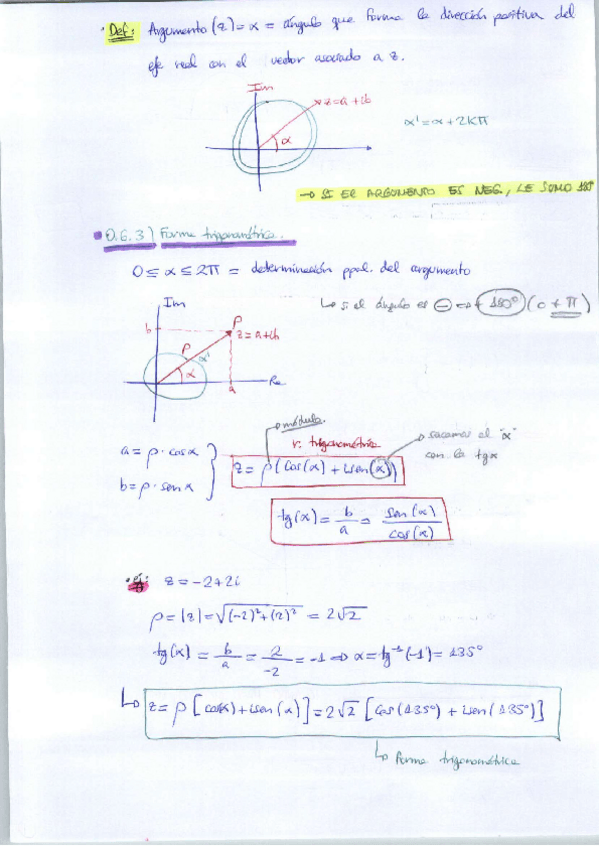 · Def: Argumento (z) = α = ángulo que forma la dirección positiva del
eje real con el vector asociado a z.
Im
z=a+ib
α
α' = α + 2Kπ
→ SI EL ARGUMENTO ES NEG., LE SUMO 180°
0.6.3) Forma trigonométrica.
0 ≤ α ≤ 2π = determinación ppal. del argumento
↳ si el ángulo es ⊖ ⇒ + 180° (o + π)
Im
b
ρ
P
z=a+ib
α'
α
a
Re
módulo.
r. trigonométrica
sacamos el "α"
con la tgα
a = ρ · cosα
b = ρ · senα
z = ρ(cos(α) + isen(α))
tg(α) = b/a = sen(α)/cos(α)
· ej: z = -2+2i
ρ = |z| = √(-2)²+(2)² = 2√2
tg(α) = b/a = 2/-2 = -1 ⇒ α = tg⁻¹(-1) = 135°
↳ z = ρ[cos(α) + isen(α)] = 2√2 [cos(135°) + isen(135°)]
↳ Forma trigonométrica